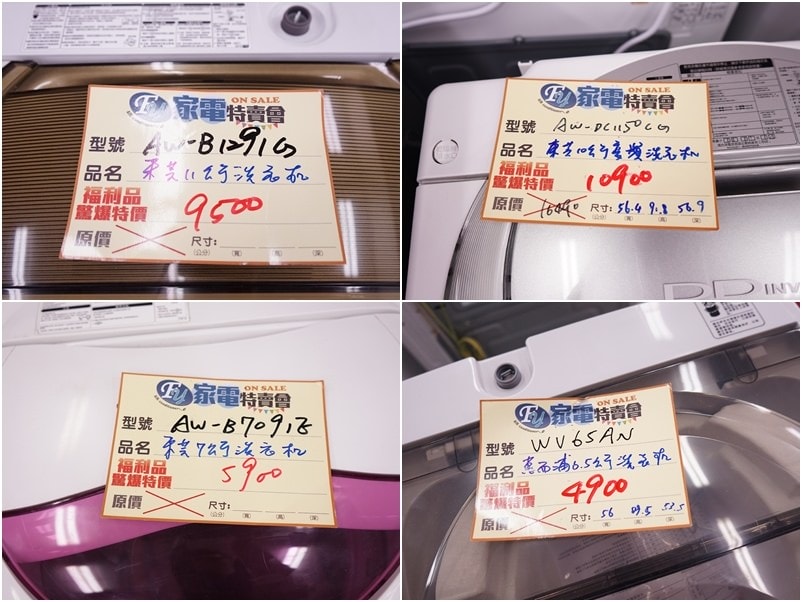 家電特賣會
ON SALE
型號 AW-B1291G
品名 東芝11公斤洗衣机
福利品
驚爆特價 9500
原價 尺寸:
(公分) (寬) (高) (深)
家電特賣會
ON SALE
型號 AW-DC1150CG
品名 東芝10公斤變頻洗衣机
福利品
驚爆特價 10900
原價 16490 尺寸: 56.4 91.8 56.9
(公分) (寬) (高) (深)
INV
家電特賣會
ON SALE
型號 AW-B7091E
品名 東芝7公斤洗衣机
福利品
驚爆特價 5900
原價 尺寸:
(公分) (寬) (高) (深)
家電特賣會
ON SALE
型號 WV65AN
品名 惠而浦6.5公斤洗衣机
福利品
驚爆特價 4900
原價 尺寸: 56 89.5 52.5
(公分) (寬) (高) (深)